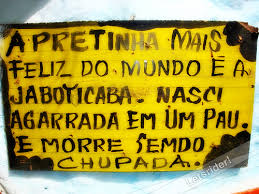 A PRETINHA MAIS
FELIZ DO MUNDO É A
JABOTICABA. NASCI
AGARRADA EM UM PAU.
E MORRE SEMDO
CHUPADA.